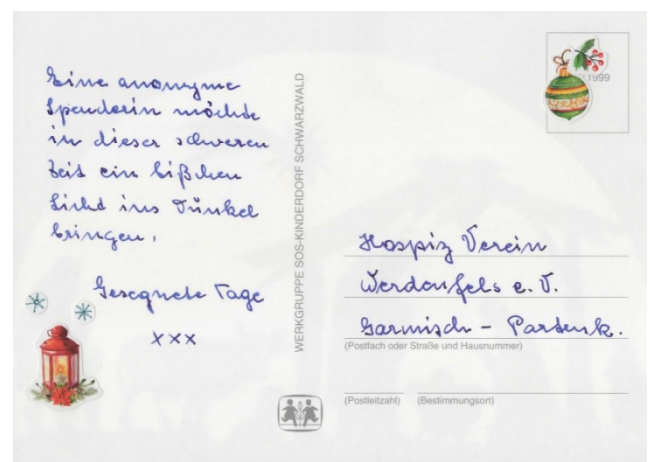 Eine anonyme
Spenderin möchte
in dieser schweren
Zeit ein bißchen
Licht ins Dunkel
bringen.
Gesegnete Tage
xxx
WERKGRUPPE SOS-KINDERDORF SCHWARZWALD
1999
Hospiz Verein
Werdenfels e. V.
Garmisch - Partenk.
(Postfach oder Straße und Hausnummer)
(Postleitzahl) (Bestimmungsort)